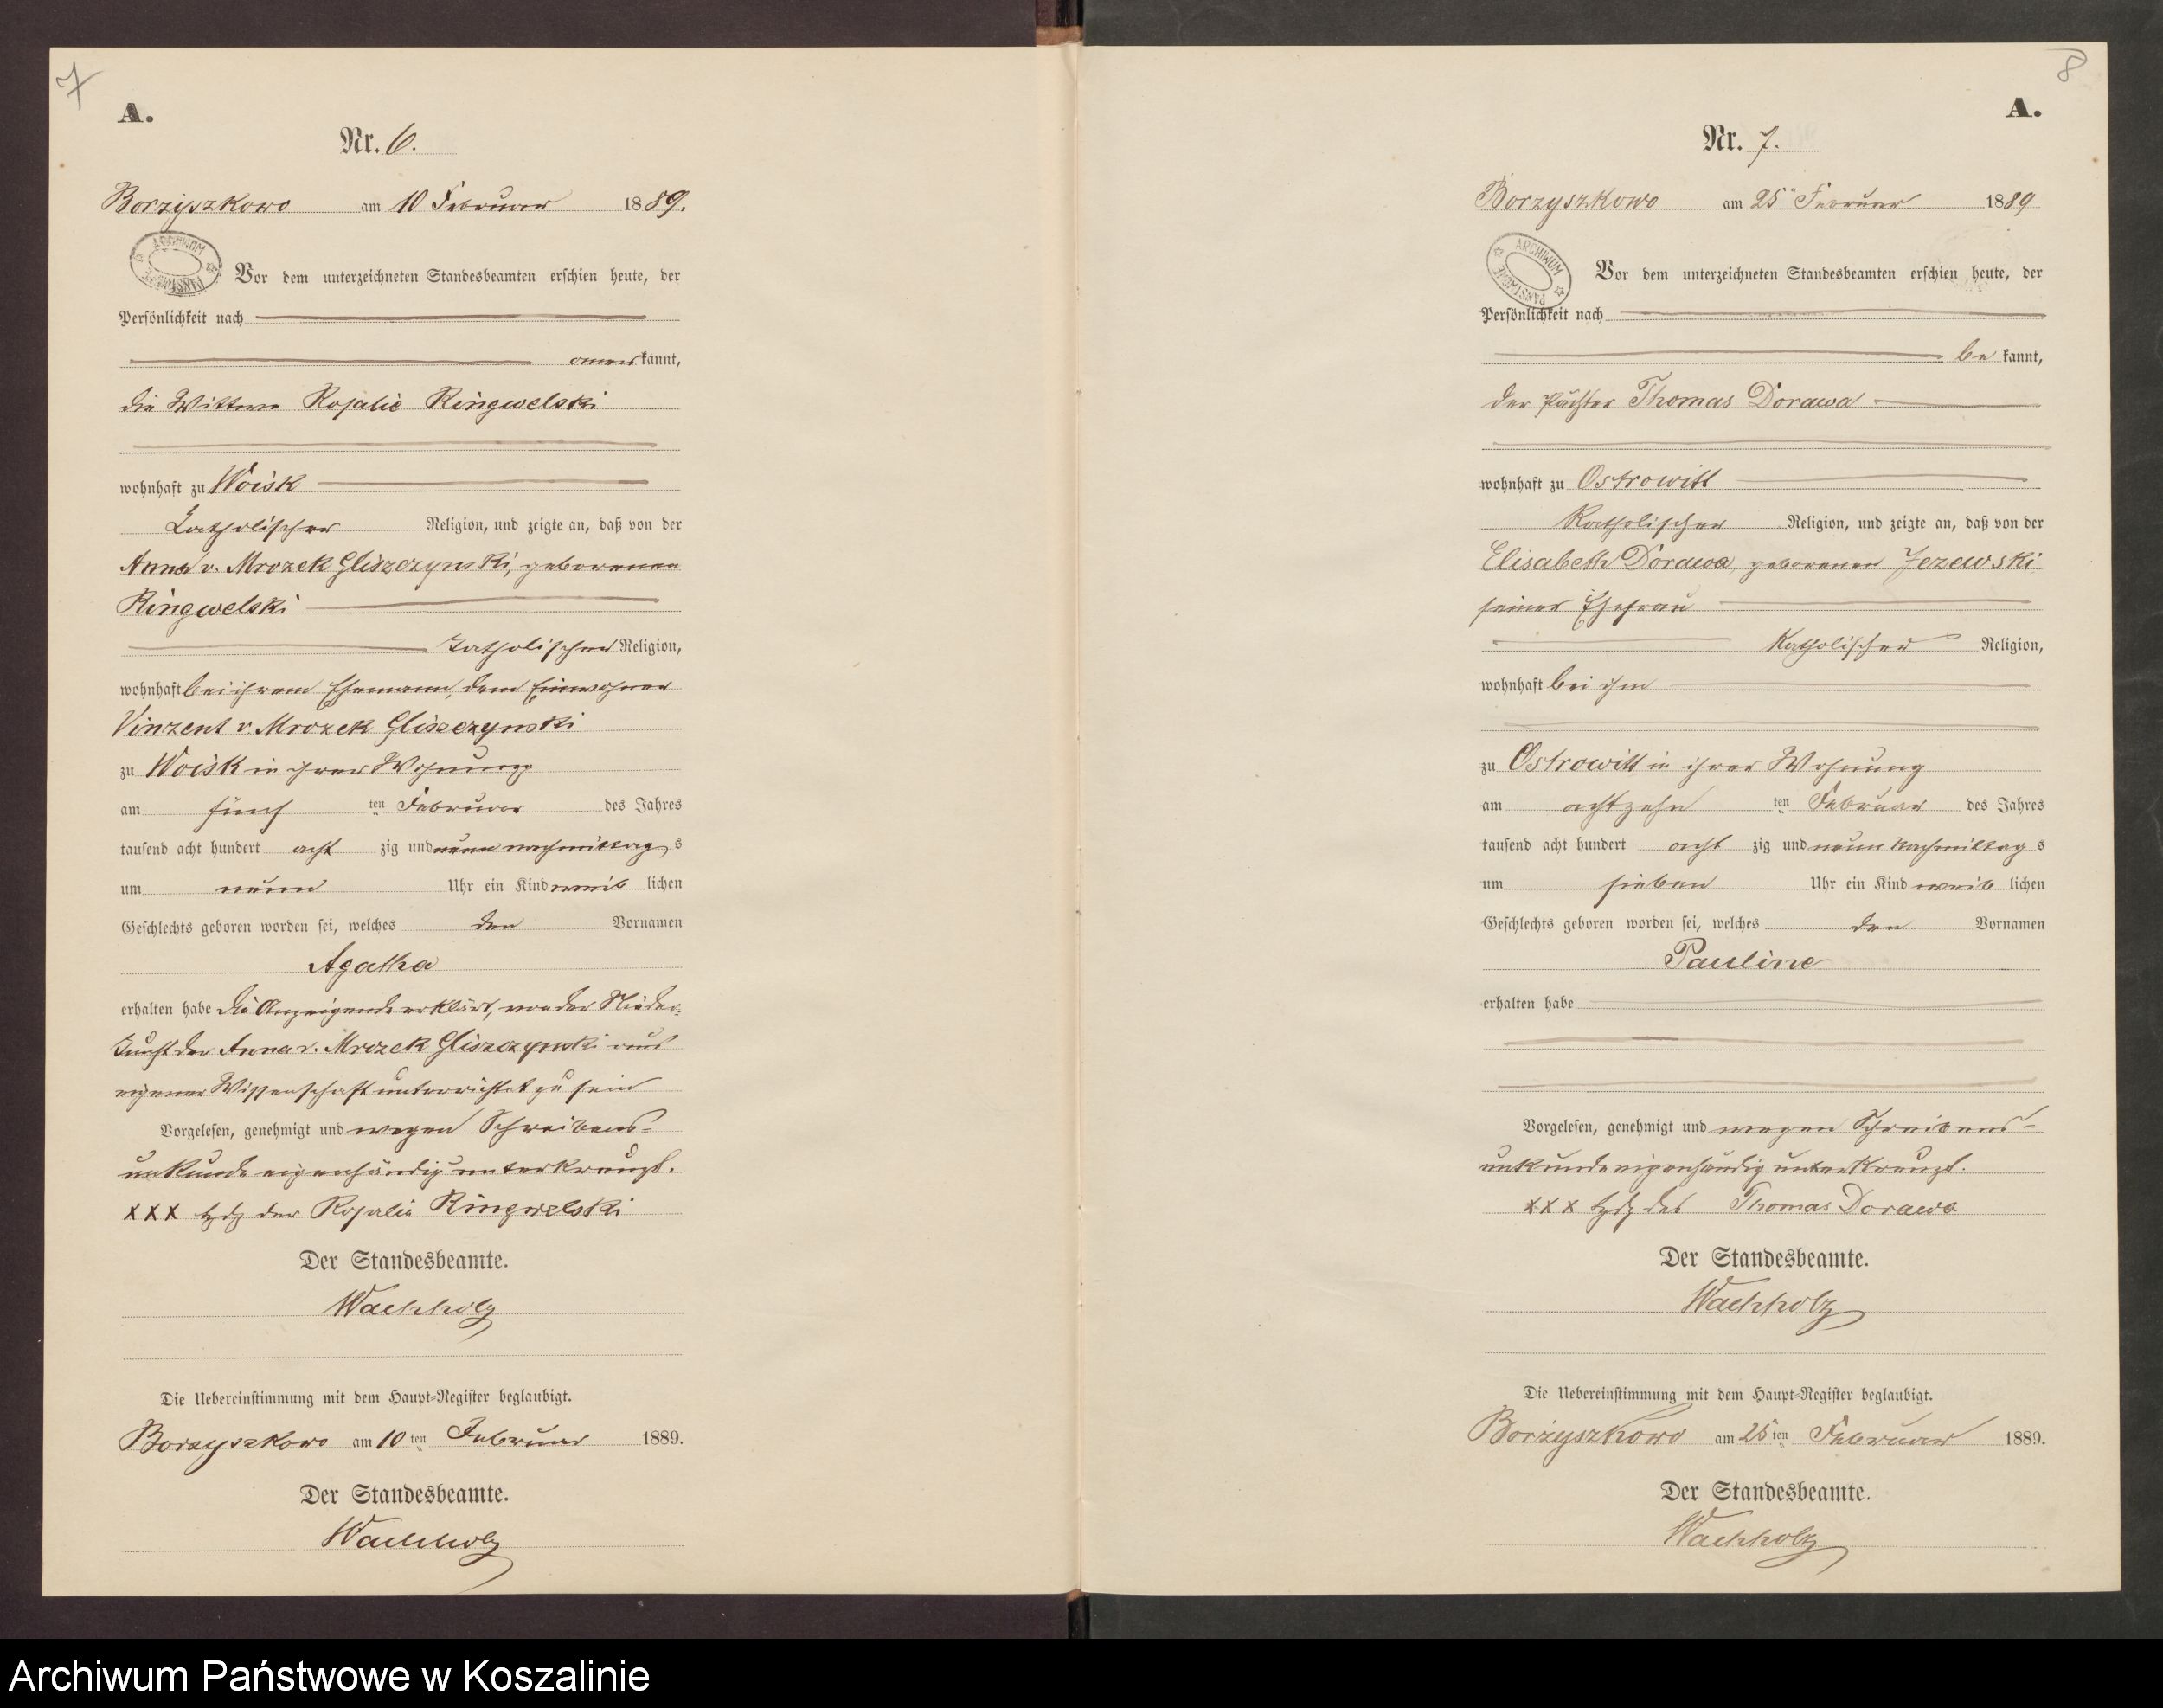 7
A.
Nr. 6.
Borzyszkowo am 10 Februar 1889.
ARCHIWUM PAŃSTWOWE
Vor dem unterzeichneten Standesbeamten erschien heute, der
Persönlichkeit nach
kannt,
die Wittwe Rosalie Ringwelski
wohnhaft zu Woisk
katholischer Religion, und zeigte an, daß von der
Anna v. Mrozek Gliszczynski, geborenen
Ringwelski
katholischer Religion,
wohnhaft bei ihrem Ehemann, dem Einwohner
Vinzent v. Mrozek Gliszczynski
zu Woisk in ihrer Wohnung
am fünf ten Februar des Jahres
tausend acht hundert acht zig und neun nachmittag s
um neun Uhr ein Kind weib lichen
Geschlechts geboren worden sei, welches den Vornamen
Agatha
erhalten habe Die Anzeigende erklärt, von der Nieder-
kunft der Anna v. Mrozek Gliszczynski aus
eigener Wissenschaft unterrichtet zu sein
Vorgelesen, genehmigt und wegen Schreibens-
unkunde eigenhändig unterkreuzt.
XXX Hdz der Rosalie Ringwelski
Der Standesbeamte.
Wachholz
Die Uebereinstimmung mit dem Haupt-Register beglaubigt.
Borzyszkowo am 10 ten Februar 1889.
Der Standesbeamte.
Wachholz
8
A.
Nr. 7.
Borzyszkowo am 25 Februar 1889
ARCHIWUM PAŃSTWOWE
Vor dem unterzeichneten Standesbeamten erschien heute, der
Persönlichkeit nach
be kannt,
der Pächter Thomas Dorawa
wohnhaft zu Ostrowitt
Katholischer Religion, und zeigte an, daß von der
Elisabeth Dorawa, geborenen Jezewski
seiner Ehefrau
Katholischer Religion,
wohnhaft bei ihm
zu Ostrowitt in ihrer Wohnung
am achtzehn ten Februar des Jahres
tausend acht hundert acht zig und neun Nachmittag s
um sieben Uhr ein Kind weib lichen
Geschlechts geboren worden sei, welches den Vornamen
Pauline
erhalten habe
Vorgelesen, genehmigt und wegen Schreibens-
unkunde eigenhändig unterkreuzt.
XXX Hdz des Thomas Dorawa
Der Standesbeamte.
Wachholz
Die Uebereinstimmung mit dem Haupt-Register beglaubigt.
Borzyszkowo am 25 ten Februar 1889.
Der Standesbeamte.
Wachholz
Archiwum Państwowe w Koszalinie